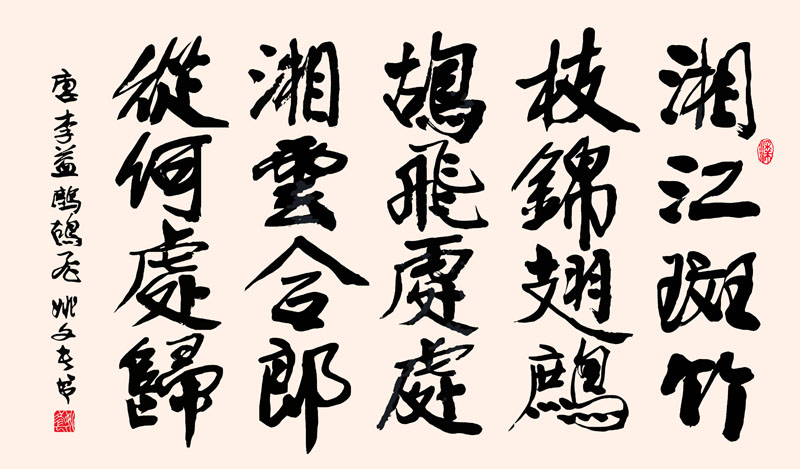 湘江斑竹
枝錦翅鷓
鴣飛處處
湘雲合郎
從何處歸
唐李益鷓鴣飛 姚文